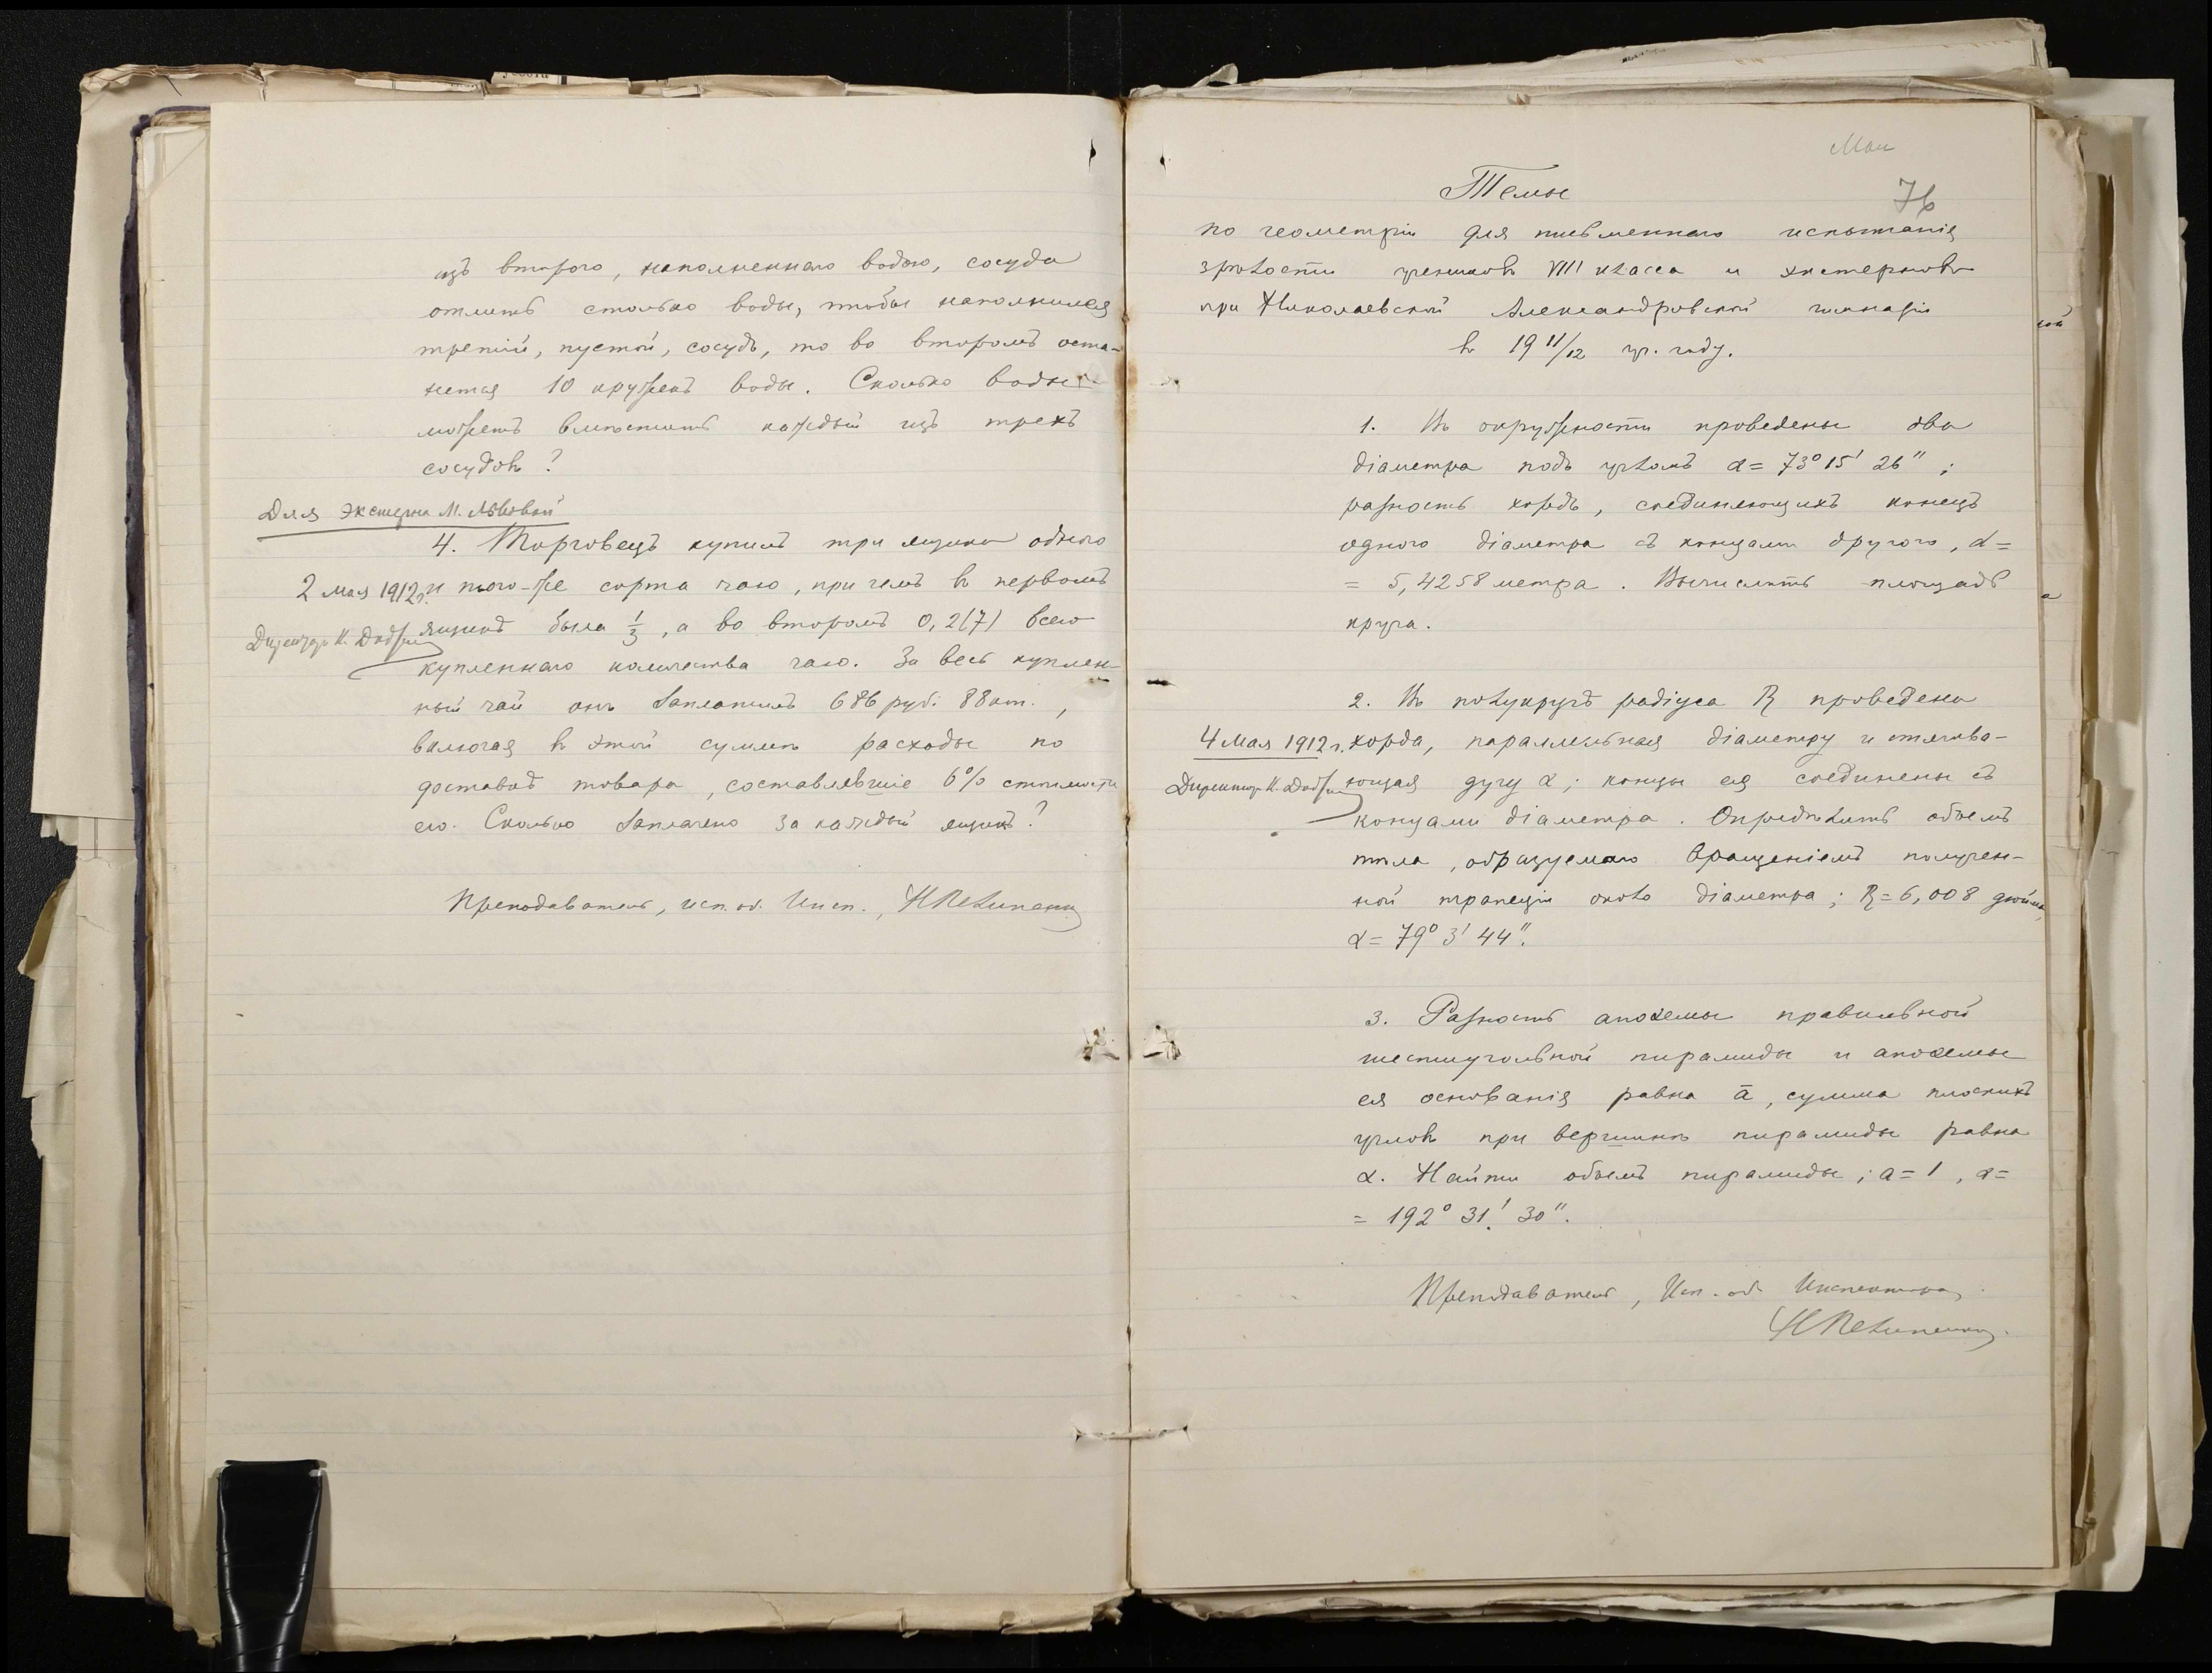 изъ второго, наполненнаго водою, сосуда
отлить столько воды, чтобы наполнился
третій, пустой, сосудъ, то во второмъ оста-
нется 10 кружекъ воды. Сколько воды
можетъ вмѣстить каждый изъ трехъ
сосудовъ?
Для экстерна М. Львовой
4. Торговецъ купилъ три ящика одного
2 мая 1912 г.
и того-же сорта чаю, при чемъ въ первомъ
Директоръ К.
ящикѣ было 1/3, а во второмъ 0,2(7) всего
купленнаго количества чаю. За весь куплен-
ный чай онъ заплатилъ 686 руб. 88 коп.,
включая въ этой суммѣ расходы по
доставкѣ товара, составлявшіе 6% стоимости
его. Сколько заплачено за каждый ящикъ?
Преподаватель, исп. об. Инсп.,
Май
76
Темы
по геометріи для письменнаго испытанія
зрѣлости учениковъ VIII класса и экстерновъ
при Николаевской Александровской гимназіи
въ 19 11/12 уч. году.
1. Въ окружности проведены два
діаметра подъ угломъ α = 73° 15' 26";
разность хордъ, соединяющихъ конецъ
одного діаметра съ концами другого, d =
= 5,4258 метра. Вычислить площадь
круга.
2. Въ полукругѣ радіуса R проведена
4 Мая 1912 г.
хорда, параллельная діаметру и стягива-
Директоръ К.
ющая дугу α; концы ея соединены съ
концами діаметра. Опредѣлить объемъ
тѣла, образуемаго вращеніемъ получен-
ной трапеціи около діаметра; R = 6,008 дюйма,
α = 79° 3' 44".
3. Разность апоѳемы правильной
шестиугольной пирамиды и апоѳемы
ея основанія равна a, сумма плоскихъ
угловъ при вершинѣ пирамиды равна
α. Найти объемъ пирамиды; a = 1, α =
= 192° 31' 30".
Преподаватель, Исп. об. Инспектора